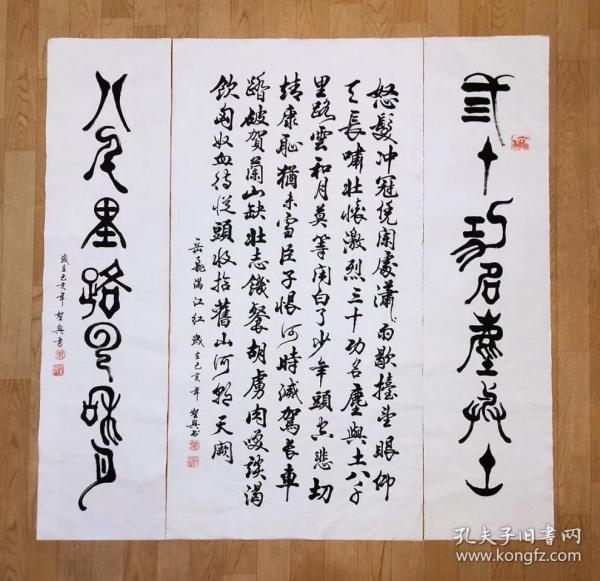 弎十功名塵與土
怒髮冲冠凭闌處瀟瀟雨歇擡望眼仰
天長嘯壯懷激烈三十功名塵與土八千
里路雲和月莫等闲白了少年頭空悲切
靖康恥猶未雪臣子恨何時滅駕長車
踏破賀蘭山缺壯志饑餐胡虜肉笑談渴
飲匈奴血待從頭收拾舊山河朝天闕
岳飛滿江紅 歲在己亥年 興書
八千里路雲和月
歲在己亥年 興書
孔夫子旧书网
www.kongfz.com